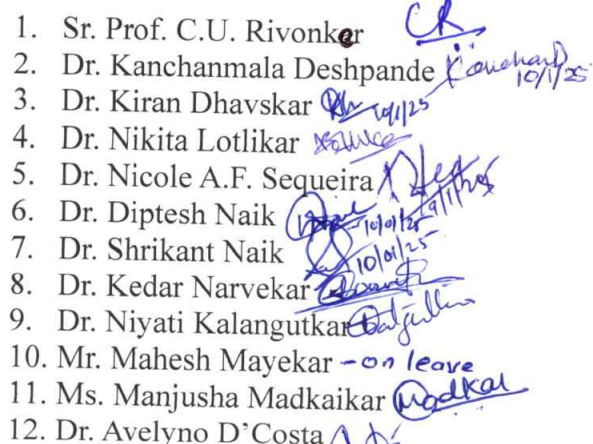 1. Sr. Prof. C.U. Rivonker CR
2. Dr. Kanchanmala Deshpande 10/1/25
3. Dr. Kiran Dhavskar 10/1/25
4. Dr. Nikita Lotlikar
5. Dr. Nicole A.F. Sequeira
6. Dr. Diptesh Naik 10/01/25
7. Dr. Shrikant Naik 10/01/25
8. Dr. Kedar Narvekar
9. Dr. Niyati Kalangutkar
10. Mr. Mahesh Mayekar - on leave
11. Ms. Manjusha Madkaikar Madkai
12. Dr. Avelyno D'Costa